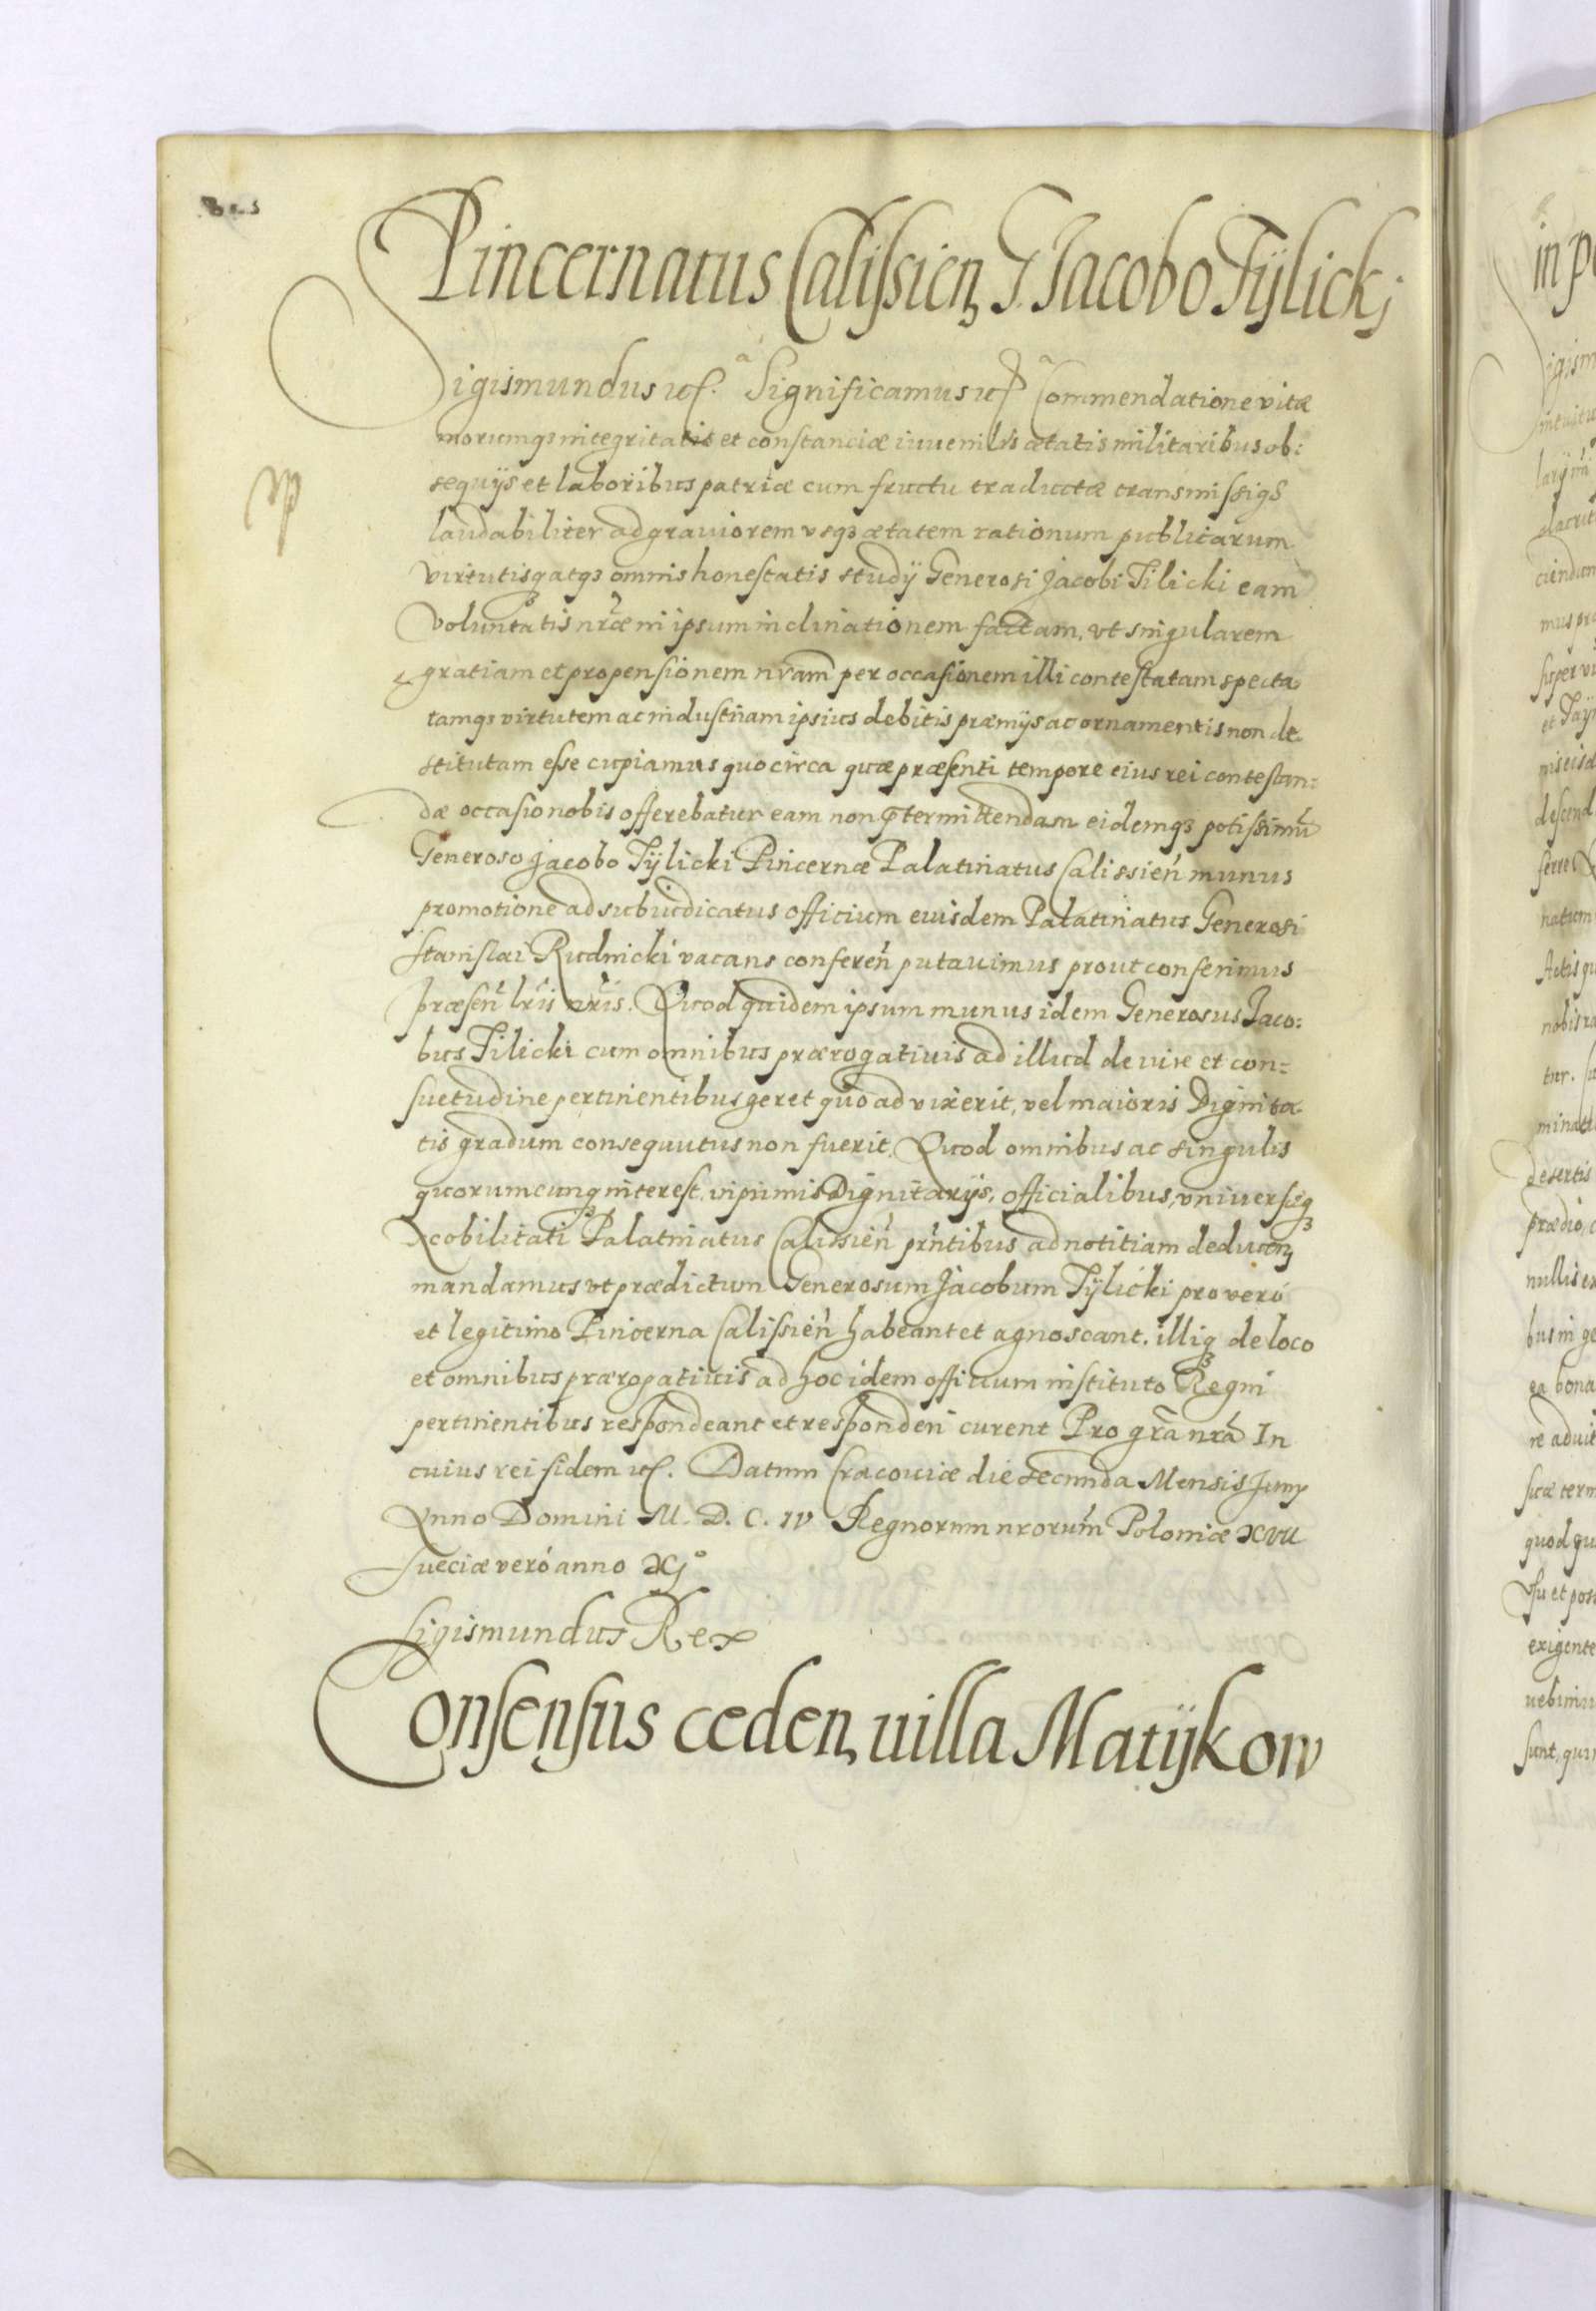 Pincernatus Calissien G. Jacobo Tÿlickj
Sigismundus etc. Significamus etc. Commendatione vitæ
morumq3 integritatis et constanciæ iuuenilis ætatis militaribus ob:
sequijs et laboribus patriæ cum fructu traductæ transmissiq3
laudabiliter ad grauiorem vsq3 ætatem rationum publicarum
virtutisq3 atq3 omnis honestatis studij Generosi Jacobi Tilicki eam
voluntatis nr̃æ in ipsum inclinationem factam, vt singularem
gratiam et propensionem nr̃am per occasionem illi contestatam specta
tamq3 virtutem ac industriam ipsius debitis præmijs ac ornamentis non de
stitutam esse cupiamus quo circa quæ præsenti tempore eius rei contestan=
dæ occasio nobis offerebatur eam non p̃termittendam eidemq3 potissimũ
Generoso Jacobo Tÿlicki Pincernæ Palatinatus Calissien̄ munus
promotione ad subiudicatus officium eiusdem Palatinatus Generosi
Stanislai Rudnicki vacans conferen̄ putauimus prout conferimus
præsen̄ lr̃is nr̃is. Quod quidem ipsum munus idem Generosus Jaco:
bus Tilicki cum omnibus prærogatiuis ad illud de iure et con=
suetudine pertinentibus geret quo ad vixerit, vel maioris Dignita
tis gradum consequutus non fuerit. Quod omnibus ac singulis
quorumcunq3 interest, vi primis Dignitarijs, officialibus, vniuersiq3
Nobilitati Palatinatus Calissien̄ pr̃ntibus ad notitiam deducen
mandamus vt prædictum Generosum Jacobum Tÿlicki pro veró
et legitimo Pincerna Calissien̄ habeant et agnoscant. illiq3 de loco
et omnibus prærogatiuis ad hoc idem officium instituto Regni
pertinentibus respondeant et responderi curent Pro gr̃a nr̃a In
cuius rei fidem etc. Datum Cracouiæ die secunda Mensis Juny
Anno Domini M. D. C. IV Regnorum nrorum̄ Poloniæ XVII
Sueciæ veró anno XIº
Sigismundus Rex
Consensus ceden uilla Matÿkow